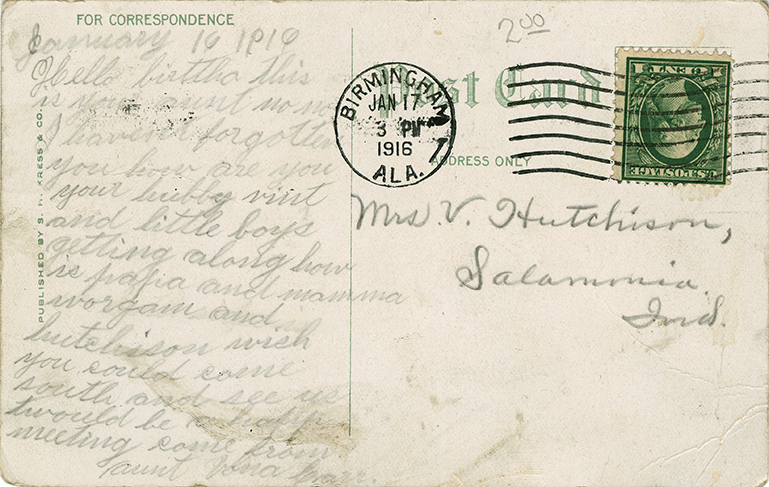 FOR CORRESPONDENCE
January 16 1916
Hello birtha this
is your aunt no no
I havent forgotten
you how are you
your hubby vint
and little boys
getting along how
is papa and mamma
worgam and
hutchison wish
you could come
south and see us
twould be a happy
meeting come from
aunt Vena
PUBLISHED BY S. H. KRESS & CO.
2 00
Post Card
ADDRESS ONLY
BIRMINGHAM
JAN 17
3 PM
1916
ALA.
7
U.S. POSTAGE
1 CENT 1
Mrs V. Hutchison,
Salamonia.
Ind.